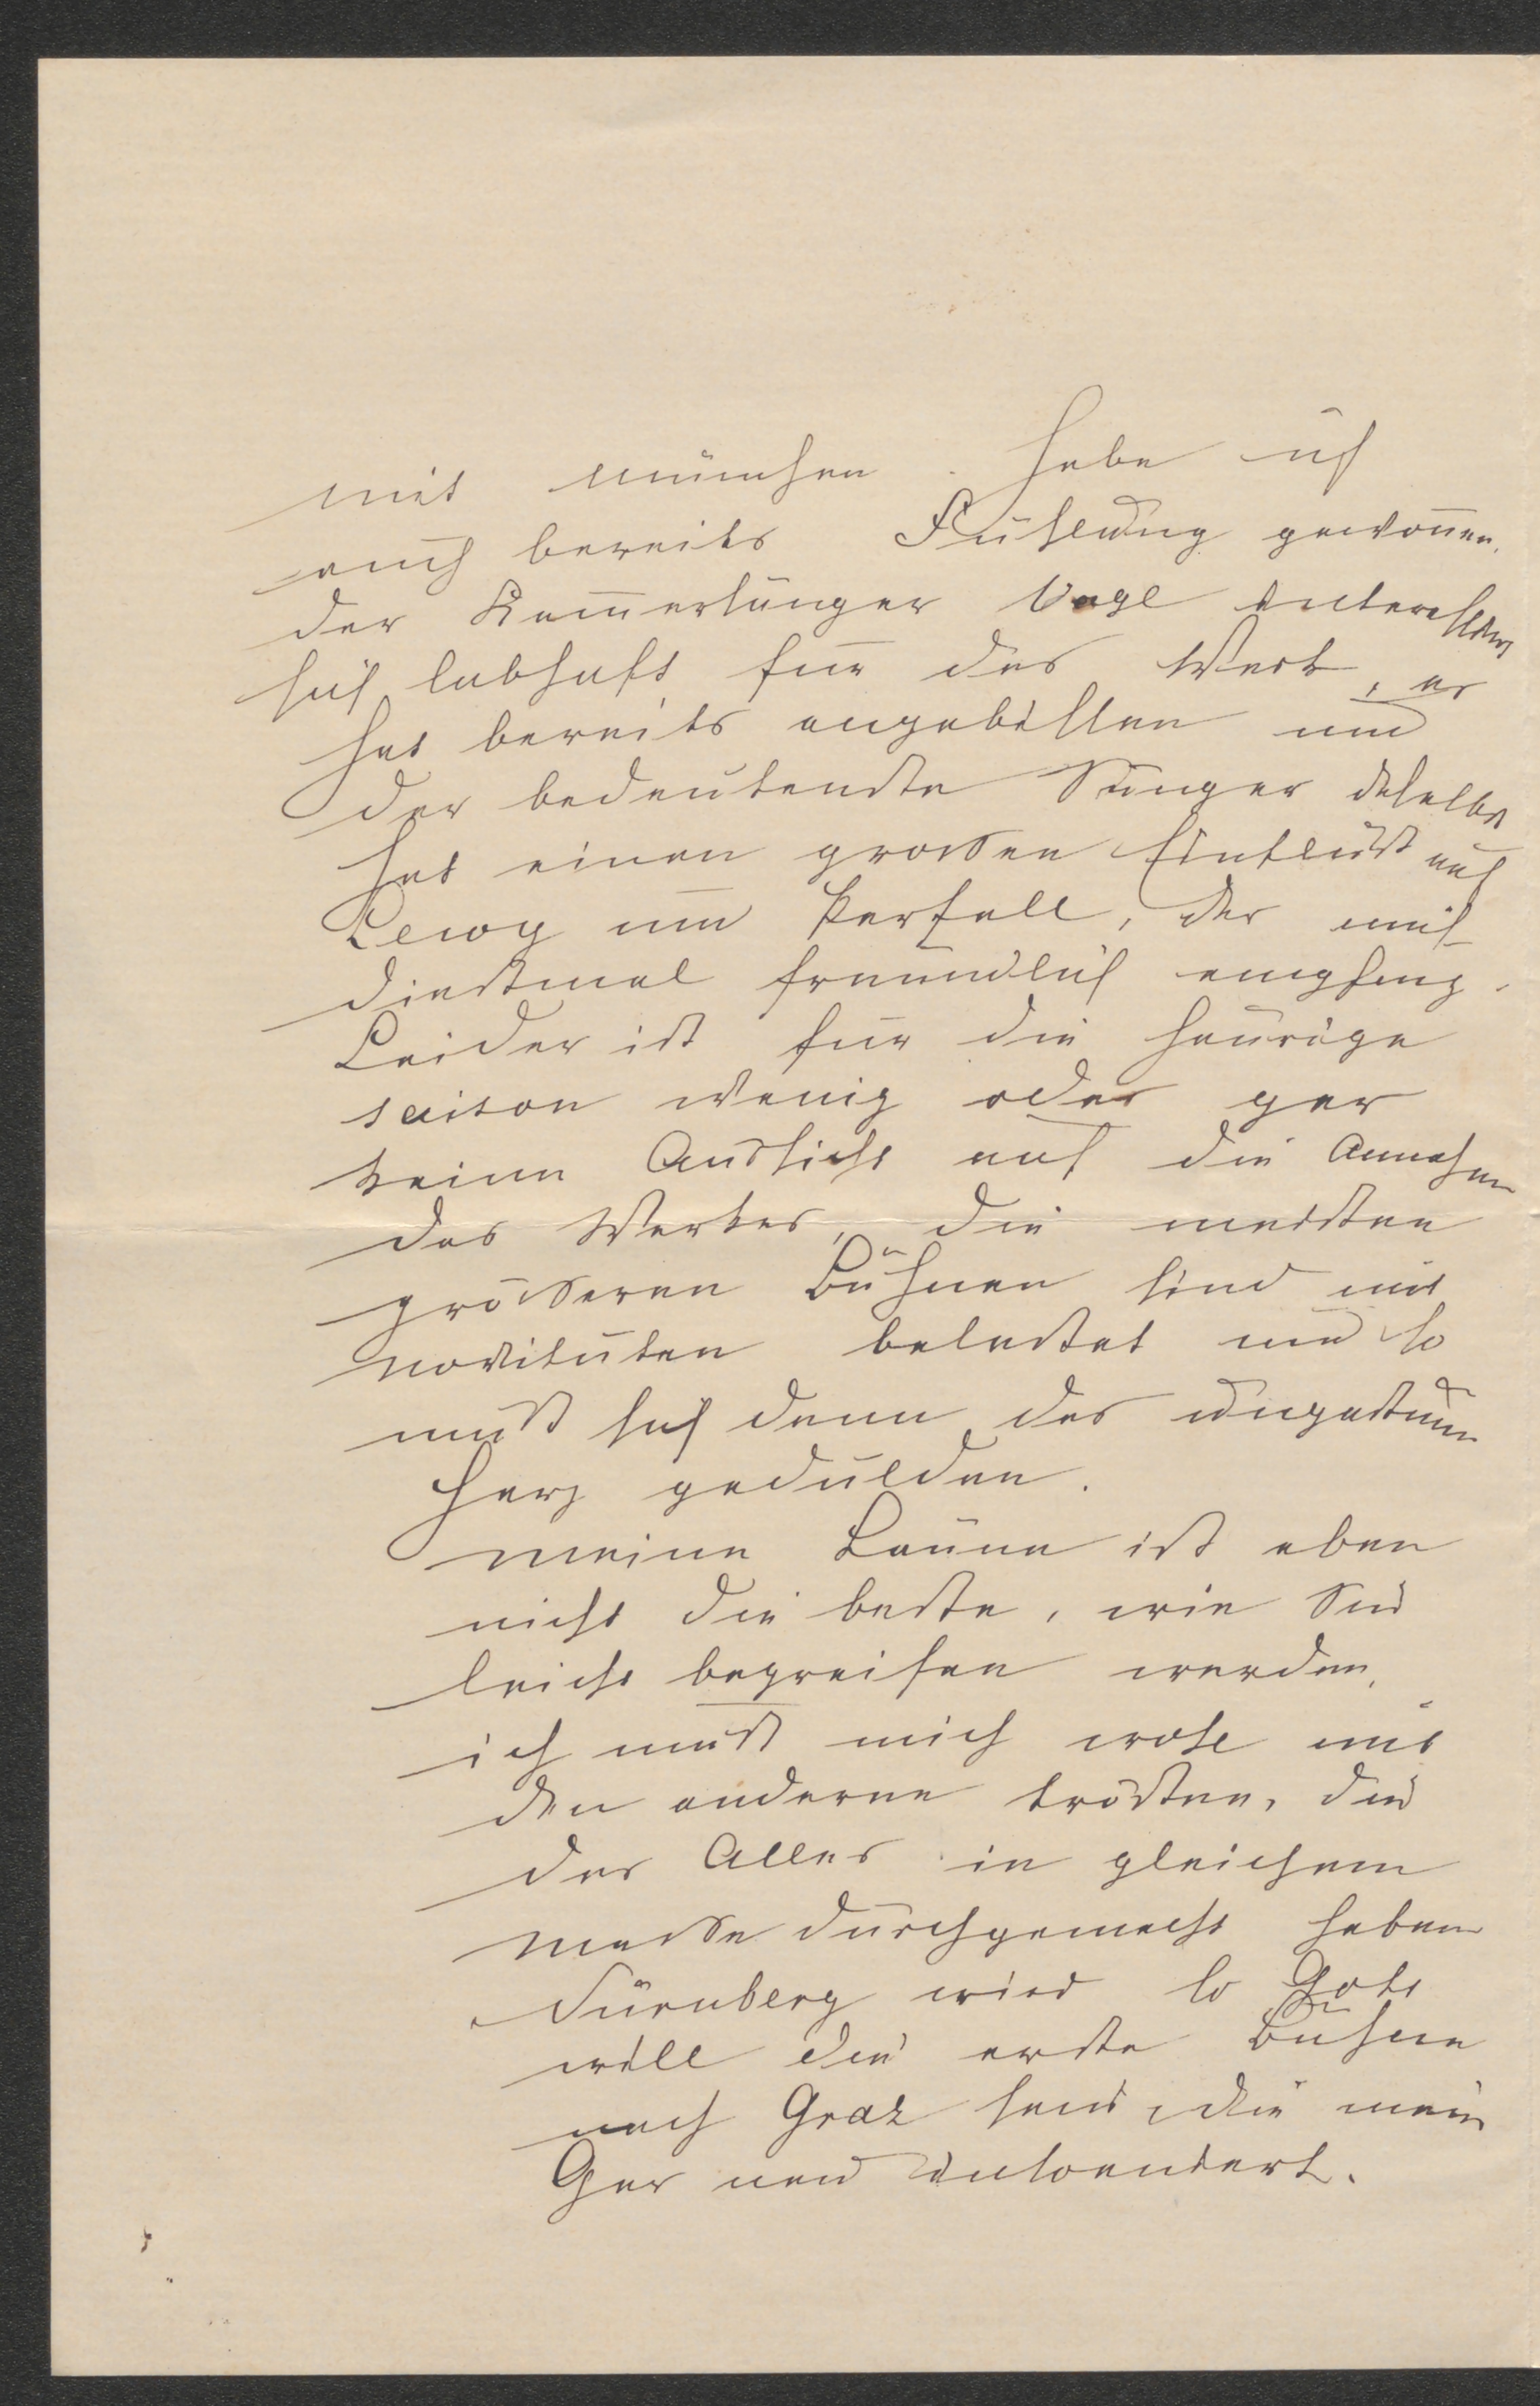 mit München habe ich
auch bereits Fühlung gewonnen.
der Kammersänger Vogl interessirt
sich lebhaft für das Werk, er
hat bereits angebissen und
der bedeutendste Sänger daselbst
hat einen grossen Einfluss auf
Lewy und Perfall, der mich
diesmal freundlich empfing.
Leider ist für die heurige
saison wenig oder gar
keine Aussicht auf die Annahme
des Werkes, die meisten
grösseren Bühnen sind mit
novitäten belastet und so
muss sich denn das ungestüme
Herz gedulden.
meine Laune ist eben
nicht die beste, wie Sie
leicht begreifen werden,
ich muss mich wohl mit
den anderen trösten, die
das Alles in gleichem
masse durchgemacht haben
Nürnberg wird so Gott
will die erste Bühne
nach Graz sein, die mein